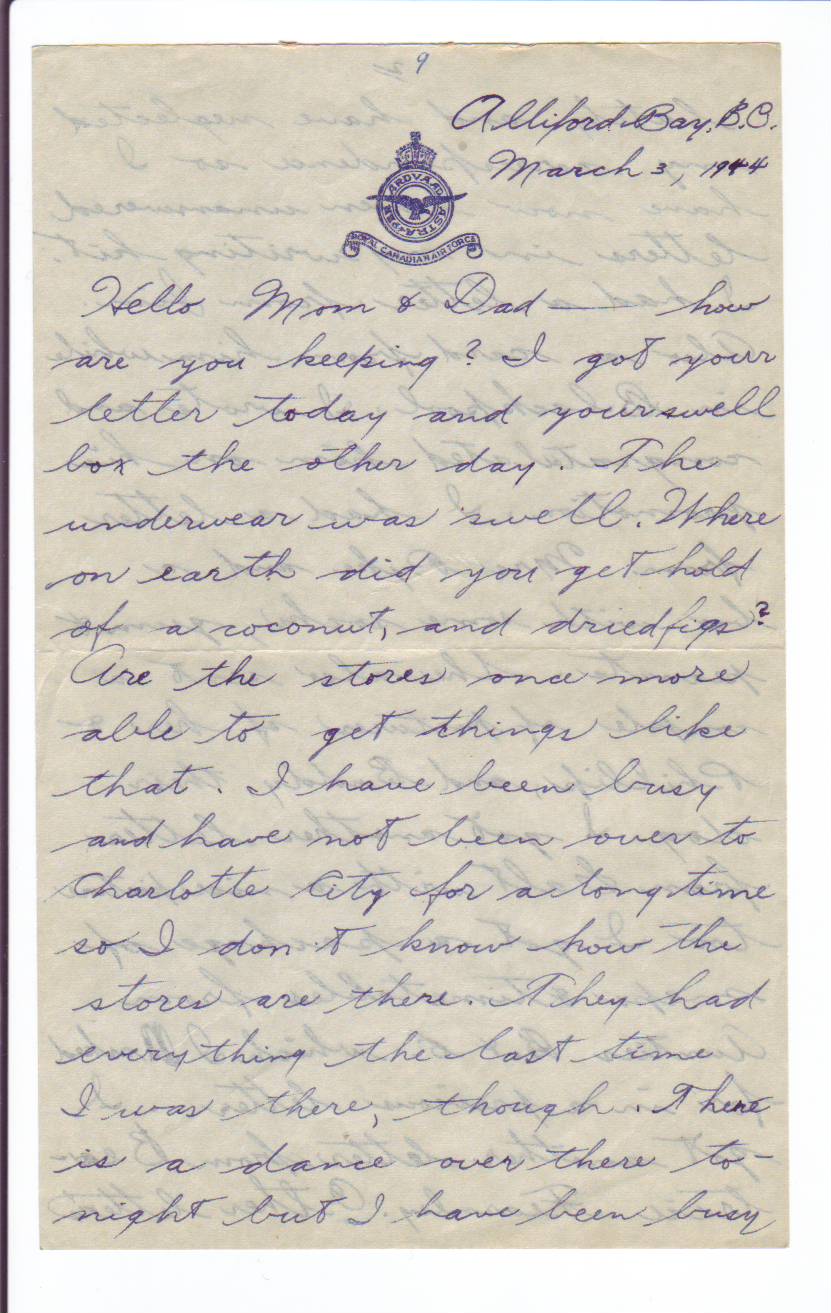 9
Alliford Bay, B.C.
March 3, 1944
PER ARDVA AD ASTRA
ROYAL CANADIAN AIR FORCE
Hello Mom & Dad — how
are you keeping? I got your
letter today and your swell
box the other day. The
underwear was swell. Where
on earth did you get hold
of a coconut, and dried figs?
Are the stores once more
able to get things like
that. I have been busy
and have not been over to
Charlotte City for a long time
so I don't know how the
stores are there. They had
everything the last time
I was there, though. There
is a dance over there to-
night but I have been busy